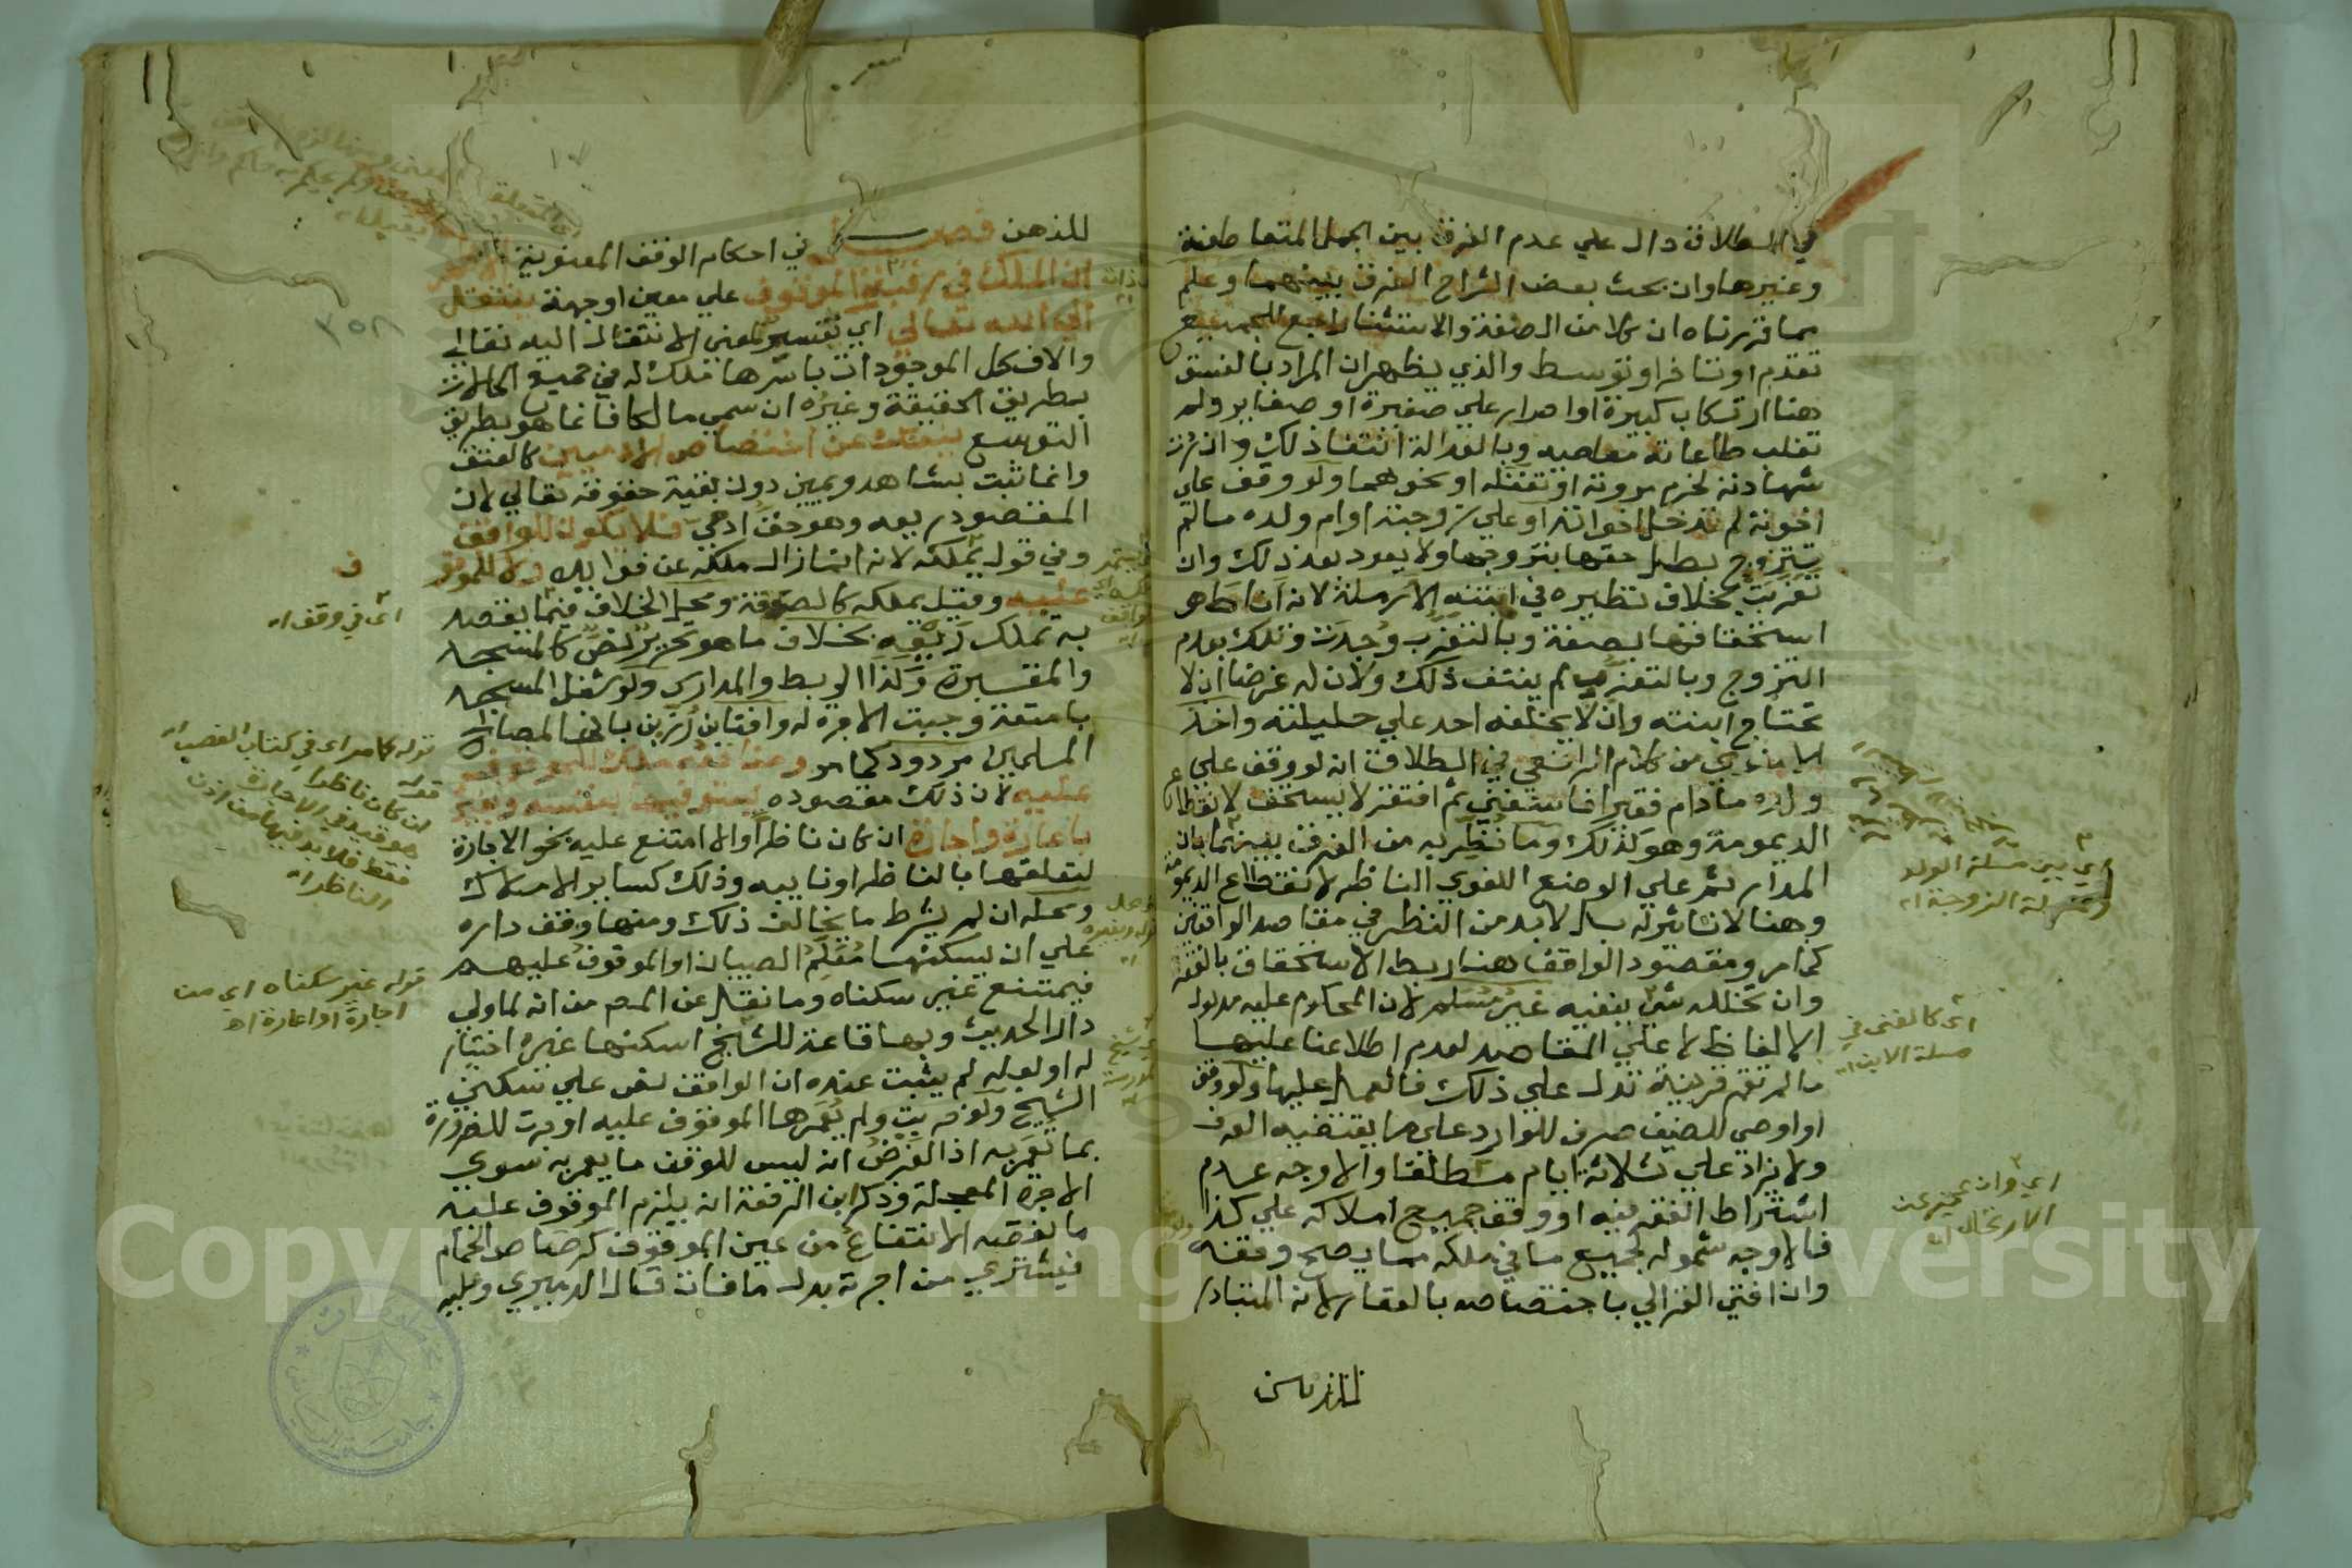 في الطلاق دال علي عدم الفرق بين الجمل المتعاطفة
وغيرها وان بحث بعض الشراح الفرق بينهما وعلم
مما قررناه ان كلا من الصفة والاستثناء راجع للجميع
تقدم او تاخر او توسط والذي يظهر ان المراد بالفسق
هنا ارتكاب كبيرة او اصرار علي صغيرة او صغاير ولم
تغلب طاعاته معاصيه وبالعدالة انتفا ذلك وان ردت
شهادته لخرم مروة او تغفله او نحوهما ولو وقف علي
اخوته لم تدخل اخواته او علي زوجته او ام ولده ما لم
تتزوج بطل حقها بتزوجها ولا يعود بعد ذلك وان
تعزبت بخلاف نظيره في ابنته الارملة لانه اناط هو
استحقاقها بصفة وبالتعزب وجدت وتلك بعدم
التزوج وبالتعزب لم ينتف ذلك ولان له غرضا ان لا
تحتاج ابنته وان لا يخلفه احد علي حليلته واخذ
الاسنوي من كلام الرافعي في الطلاق انه لو وقف علي
ولده ما دام فقيرا فاستغني ثم افتقر لا يستحق لانقطاع
الديمومة وهو كذلك وما نظر به من الفرق بينهما بان
المدار ثم علي الوضع اللغوي الناظر لانقطاع الديمومة
وهنا لا تاثير له بل لا بد من النظر في مقاصد الواقفين
كما مر ومقصود الواقف هنا ربط الاستحقاق بالفقر
وان تخلله شي ينفيه غير مسلم لان المحكوم عليه مدلول
الالفاظ لا علي المقاصد لعدم اطلاعنا عليها
ما لم تقم قرينة تدل علي ذلك فالعمل عليها ولو وقف
او اوصي للضيف صرف للوارد علي ما يقتضيه العرف
ولا يزاد علي ثلاثة ايام مطلقا والاوجه عدم
اشتراط الفقر فيه او وقف جميع املاكه علي كذا
فالاوجه شموله لجميع ما في ملكه مما يصح وقفه
وان افتي الغزالي باختصاصه بالعقار لانه المتبادر
للذهن
اي بين مسئلة الولد
ومسئلة الزوجة اه
اي كالغني في
مسئلة الابن اه
اي وان عجز عن
الارتحال اه
للذهن فصل في احكام الوقف المعنوية الاظهر
ان الملك في رقبة الموقوف علي معين او جهة ينتقل
الي الله تعالي اي تفسير لمعني الانتقال اليه تعالي
والا فكل الموجودات باسرها ملك له في جميع الحالات
بطريق الحقيقة وغيره ان سمي مالكا فانما هو بطريق
التوسع ينفك عن اختصاص الادميين كالعتق
وانما ثبت بشاهد ويمين دون بقية حقوقه تعالي لان
المقصود ريعه وهو حق ادمي فلا يكون للواقف
وفي قول يملكه لانه انما ازال ملكه عن فوايده ولا للموقوف
عليه وقيل يملكه كالصدقة ومحل الخلاف فيما يقصد
به تملك ريعه بخلاف ما هو تحرير نص كالمسجد
والمقبرة وكذا الربط والمدارس ولو شغل المسجد
بامتعة وجبت الاجرة له وافتا ابن رزين بانها لمصالح
المسلمين مردود كما مر ومنافعه ملك للموقوف
عليه لان ذلك مقصوده يستوفيها بنفسه وبغيره
باعارة واجارة ان كان ناظرا والا امتنع عليه نحو الاجارة
لتعلقها بالناظر او نايبه وذلك كساير الاملاك
ومحله ان لم يشرط ما يخالف ذلك ومنها وقف داره
علي ان يسكنها معلم الصبيان او الموقوف عليهم
فيمتنع غير سكناه وما نقل عن المصـ من انه لما ولي
دار الحديث وبها قاعة للشيخ اسكنها غيره اختيار
له او لعله لم يثبت عنده ان الواقف نص علي سكني
الشيخ ولو خربت ولم يعمرها الموقوف عليه اوجرت للضرورة
بما تعمر به اذ الفرض انه ليس للوقف ما يعمر به سوي
الاجرة المعجلة وذكر ابن الرفعة انه يلزم الموقوف عليه
ما نقصه الانتفاع من عين الموقوف كرصاص الحمام
فيشتري من اجرته بدل ما فات قال الدميري وعليه
٣٥٨
ف
اي في وقف اه
قوله كما مر اي في كتاب الغصب اه
قوله
ان كان ناظرا
هو قيد في الاجارة
فقط فلا بد فيها من اذن
الناظر اه
قوله غير سكناه اي من
اجارة او اعارة اه
Copyright © King Saud University